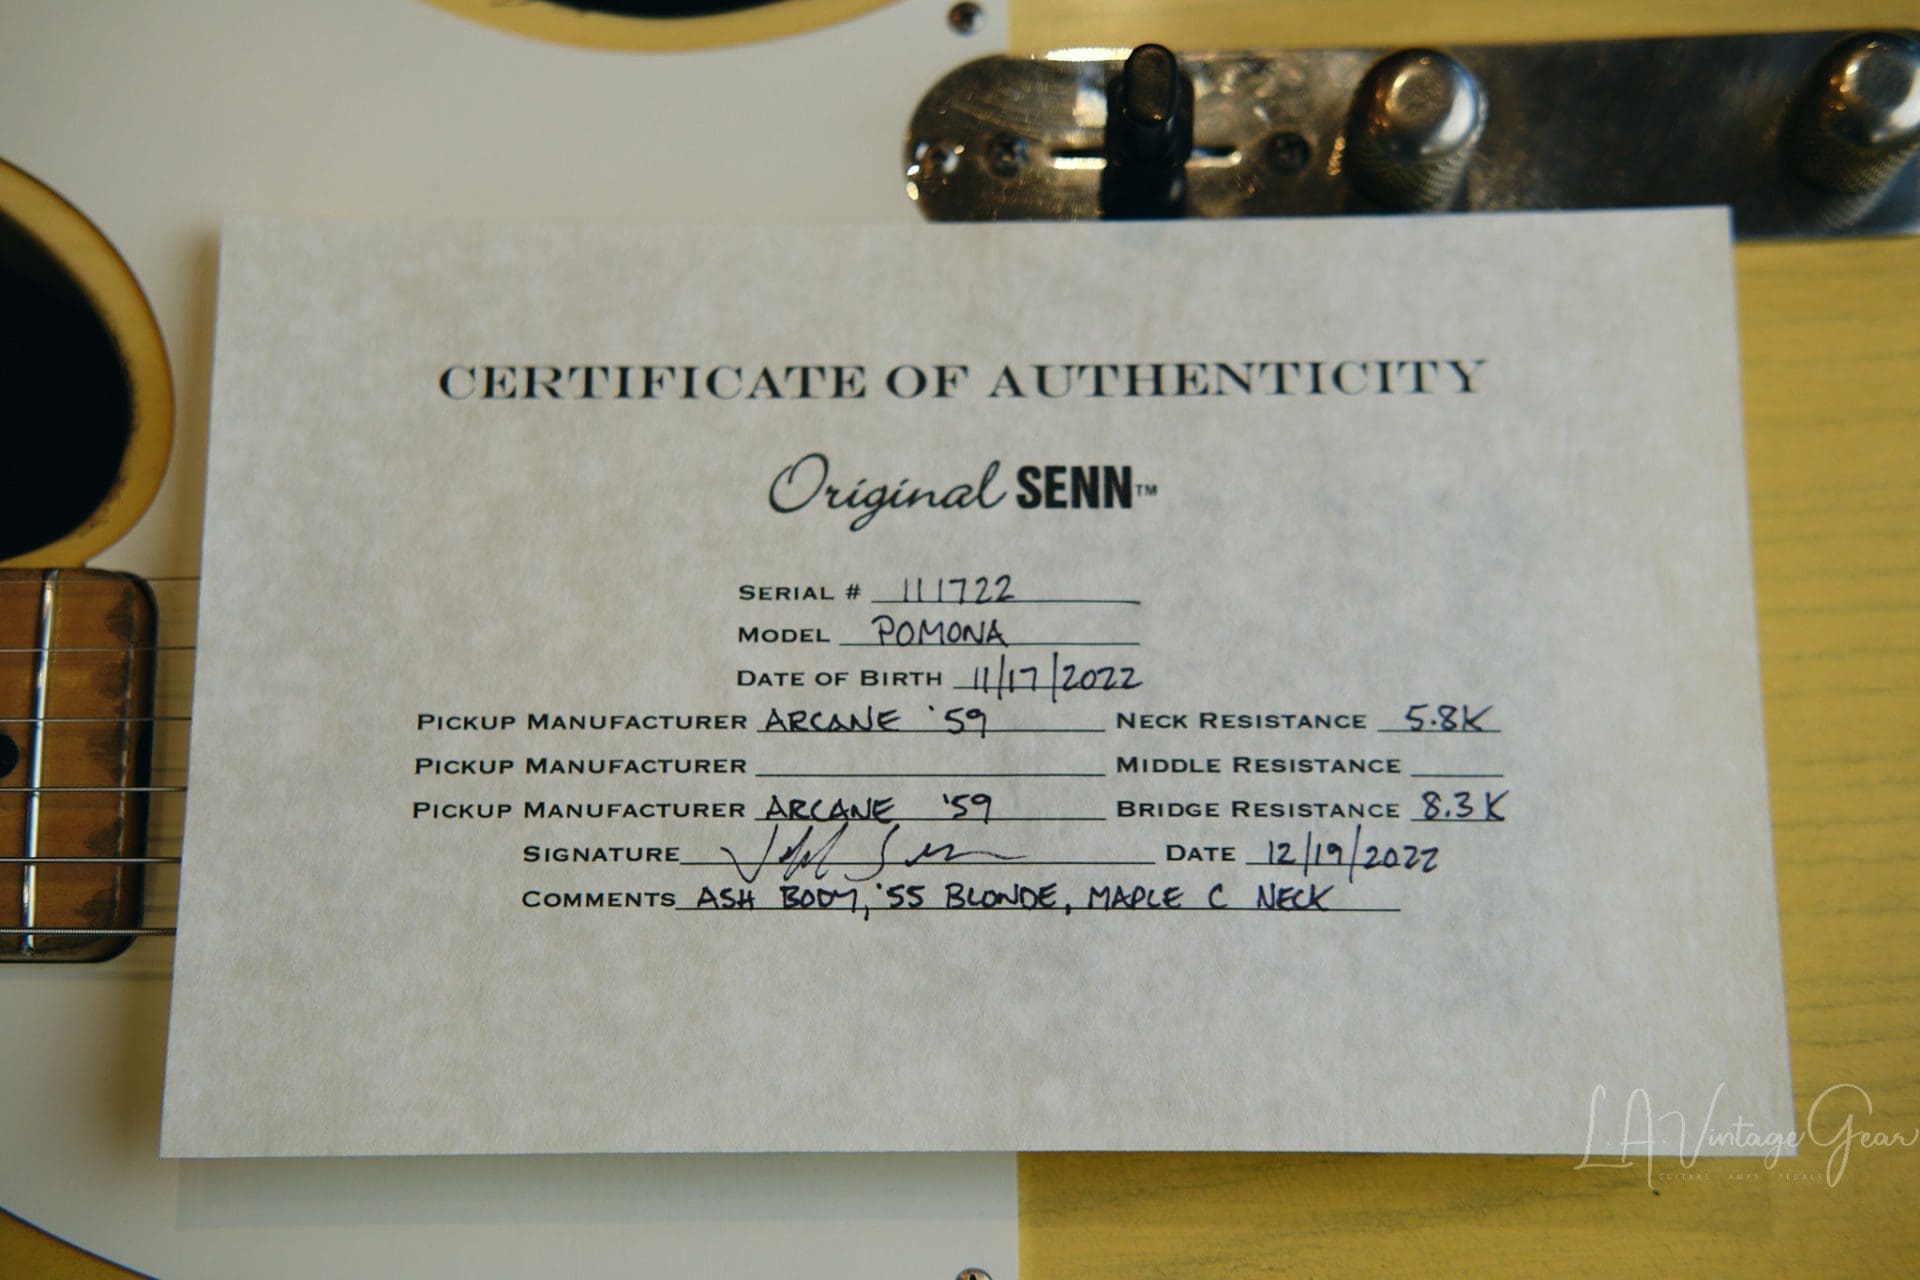 CERTIFICATE OF AUTHENTICITY
Original SENN™
SERIAL # 111722
MODEL POMONA
DATE OF BIRTH 11/17/2022
PICKUP MANUFACTURER ARCANE '59 NECK RESISTANCE 5.8K
PICKUP MANUFACTURER MIDDLE RESISTANCE
PICKUP MANUFACTURER ARCANE '59 BRIDGE RESISTANCE 8.3K
SIGNATURE DATE 12/19/2022
COMMENTS ASH BODY, '55 BLONDE, MAPLE C NECK
L.A. Vintage Gear
GUITARS AMPS PEDALS